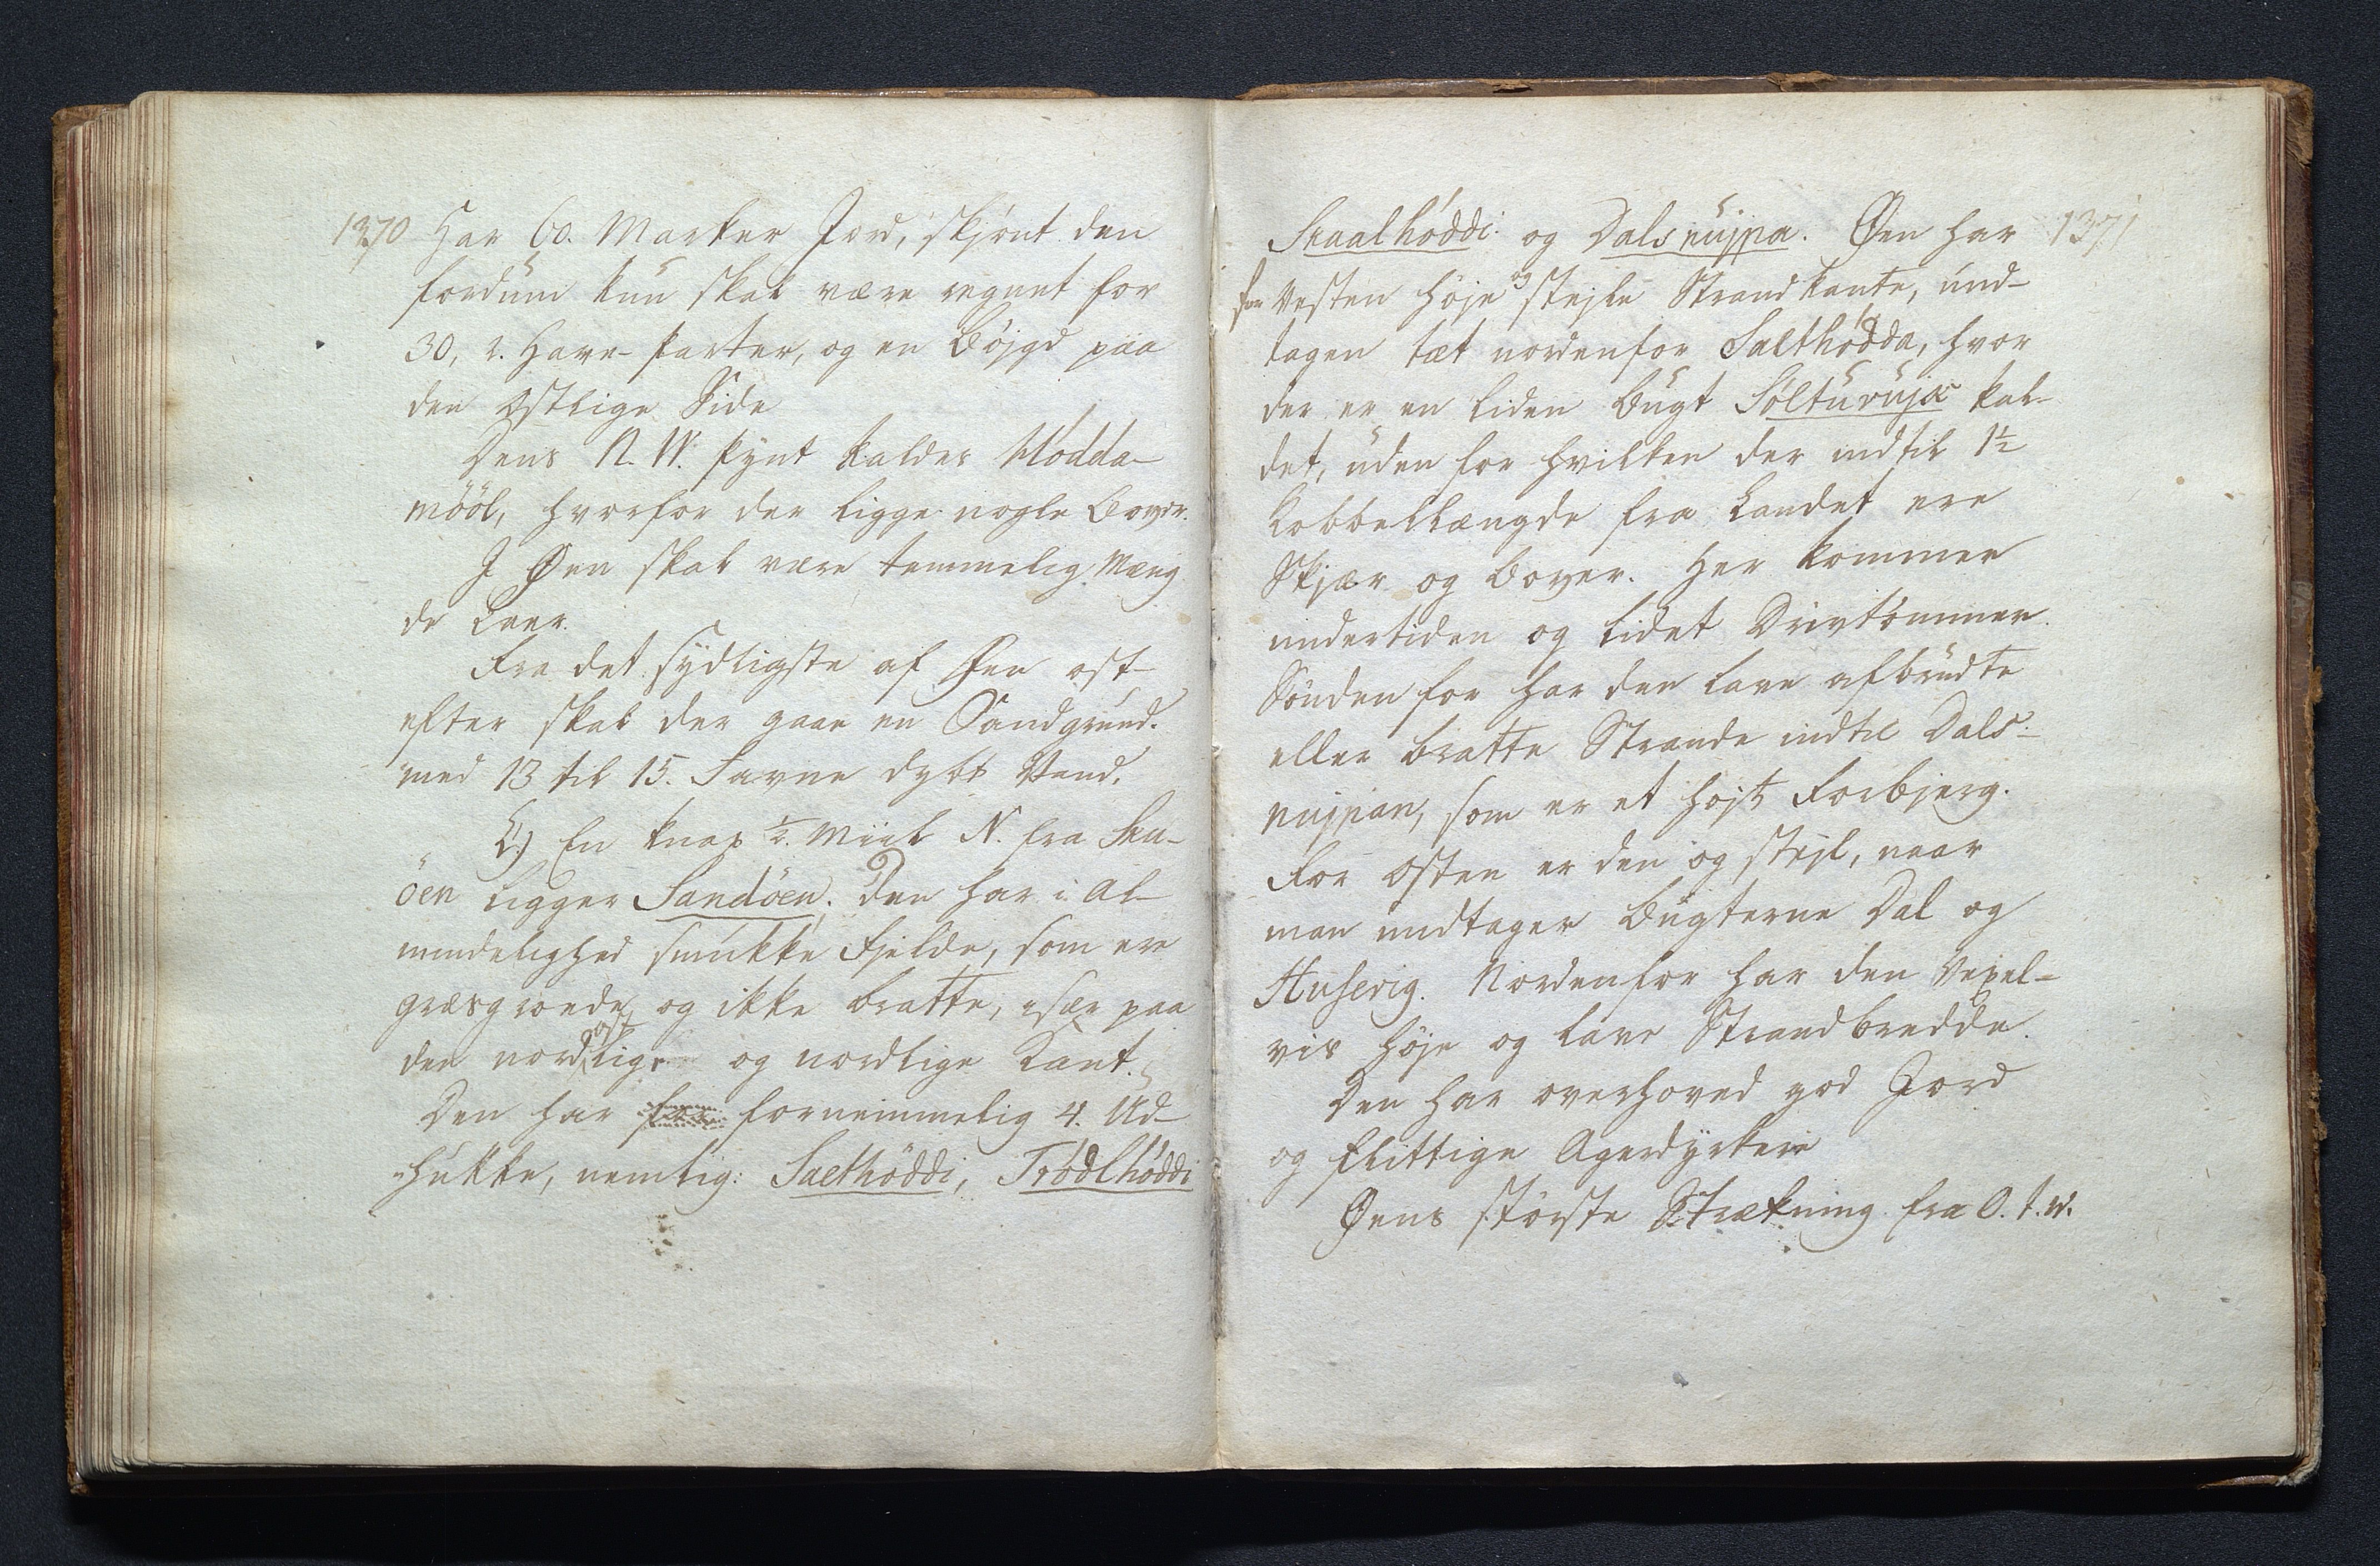 1370 Har 60. Marker Jord, skjønt den
fordum kun skal være regnet for
30, 2. Have-Parter, og en Bøjgd paa
den Østlige Side
Dens N. W. Pynt kaldes Hódda-
mööl, hvorfor der ligge nogle Boyer.
I Øen skal være temmelig Mæng
de Leer.
Fra det sydligste af Øen ost-
efter skal der gaae en Sandgrund.
med 13 til 15. Favne dybt Vand.
C.) En knap 1/2. Miil N. fra Sku-
öen ligger Sandöen. Den har i Al-
mindelighed smukke Fjelde, som ere
græsgroede, og ikke bratte, især paa
den nordostlige og nordlige Kant.
Den har for fornemmelig 4. Ud-
hukke, nemlig: Salthöddi, Tródlhöddi
Skaalhóddi og Dalsnujpa. Øen har 1371
for Vesten høje og stejle Strandkante, und-
tagen tæt nordenfor Salthódda, hvor
der er en liden Bugt Söltuvujк kal-
det, uden for hvilken der indtil 1½
Kobbellængde fra Landet ere
Skjær og Boyer. Her kommer
undertiden og lidet Drivtømmer.
Sönden for har den lave afbrudte
eller bratte Strande indtil Dals-
nujpan, som er et højt Forbjerg.
For Osten er den og stejl, naar
man undtager Bugterne Dal og
Husevig. Nordenfor har den vexel-
vis høje og lave Strandbredde.
Den har overhoved god Jord
og flittige Agerdyrkere
Øens störste Strækning fra O. t. W.